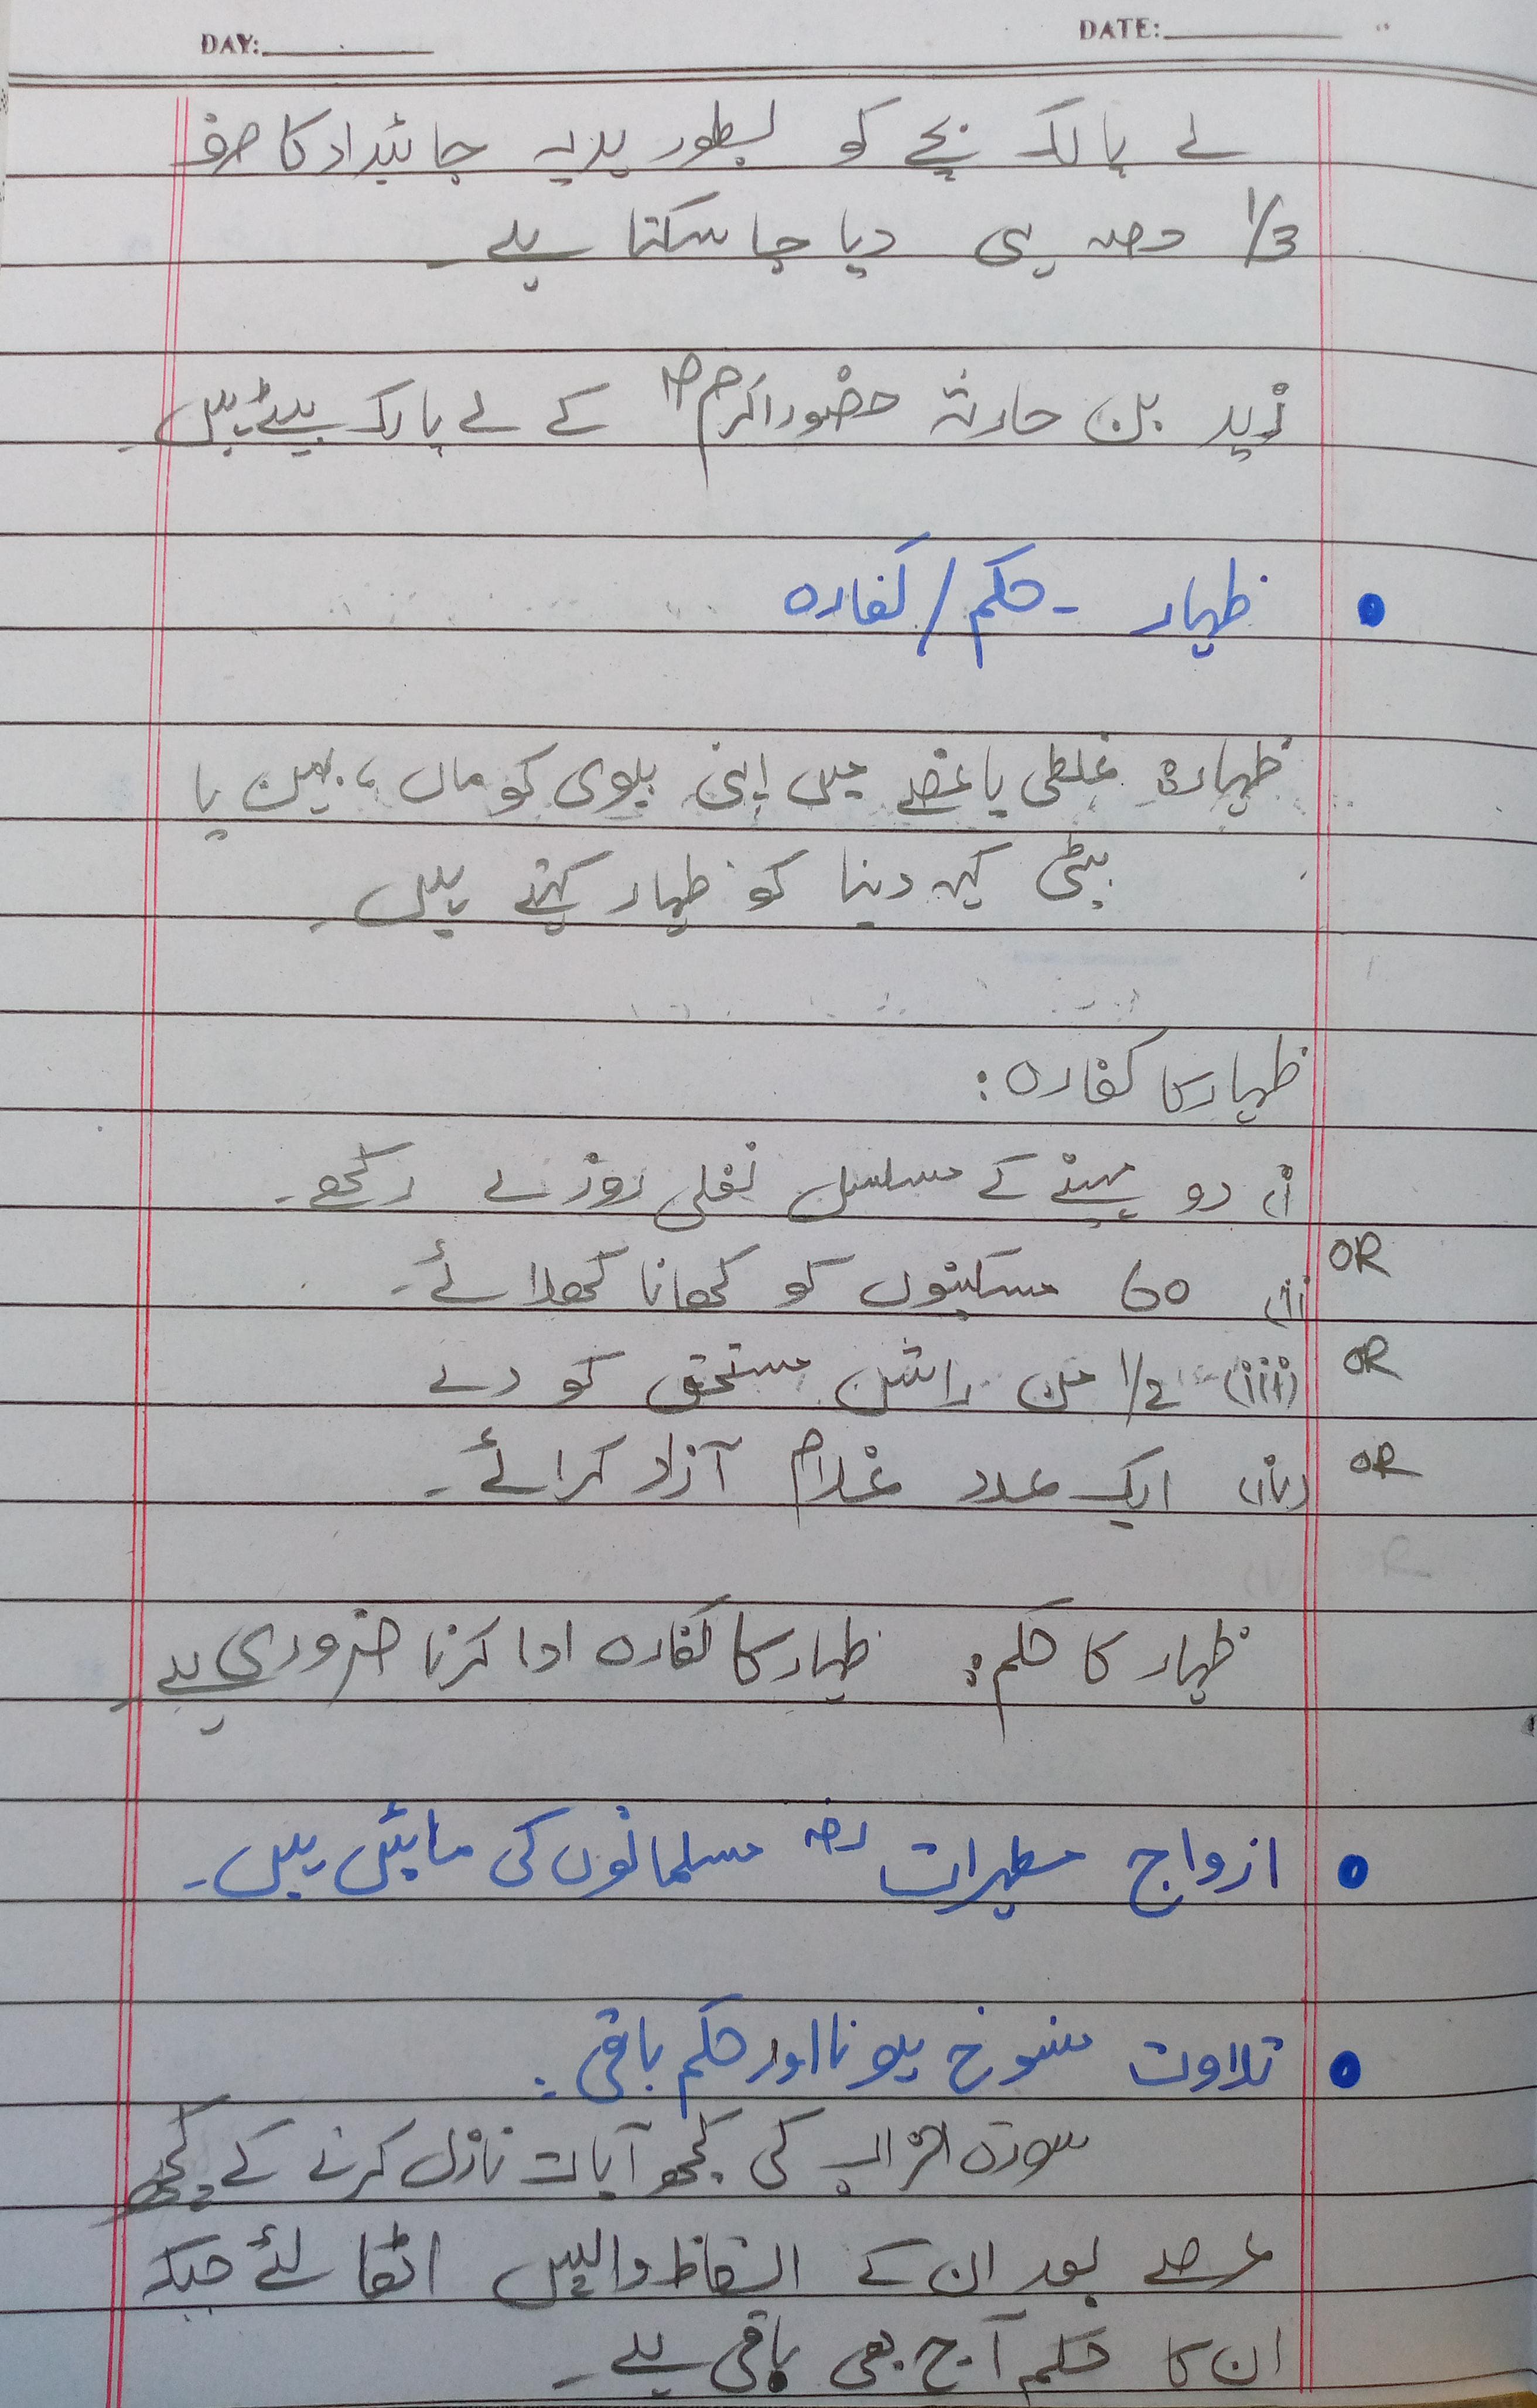 DAY: DATE:
لے پالک بچے کو بطور ہدیہ جائیداد کا صرف
1/3 حصہ ہی دیا جا سکتا ہے۔
زید بن حارثہ حضور اکرمؐ کے لے پالک بیٹے ہیں۔
• ظہار - حکم / کفارہ
ظہار: غلطی یا غصے میں اپنی بیوی کو ماں، بہن یا
بیٹی کہہ دینا کو ظہار کہتے ہیں۔
ظہار کا کفارہ:
i) دو مہینے کے مسلسل نفلی روزے رکھے۔
OR
ii) 60 مسکینوں کو کھانا کھلائے۔
OR
iii) 1/2 من راشن مستحق کو دے
OR
iv) ایک عدد غلام آزاد کرائے۔
ظہار کا حکم: ظہار کا کفارہ ادا کرنا ضروری ہے۔
• ازواج مطہراتؓ مسلمانوں کی مائیں ہیں۔
• تلاوت منسوخ ہونا اور حکم باقی:
سورۃ الاحزاب کی کچھ آیات نازل کرنے کے کچھ
عرصے بعد ان کے الفاظ واپس اٹھا لئے جبکہ
ان کا حکم آج بھی باقی ہے۔